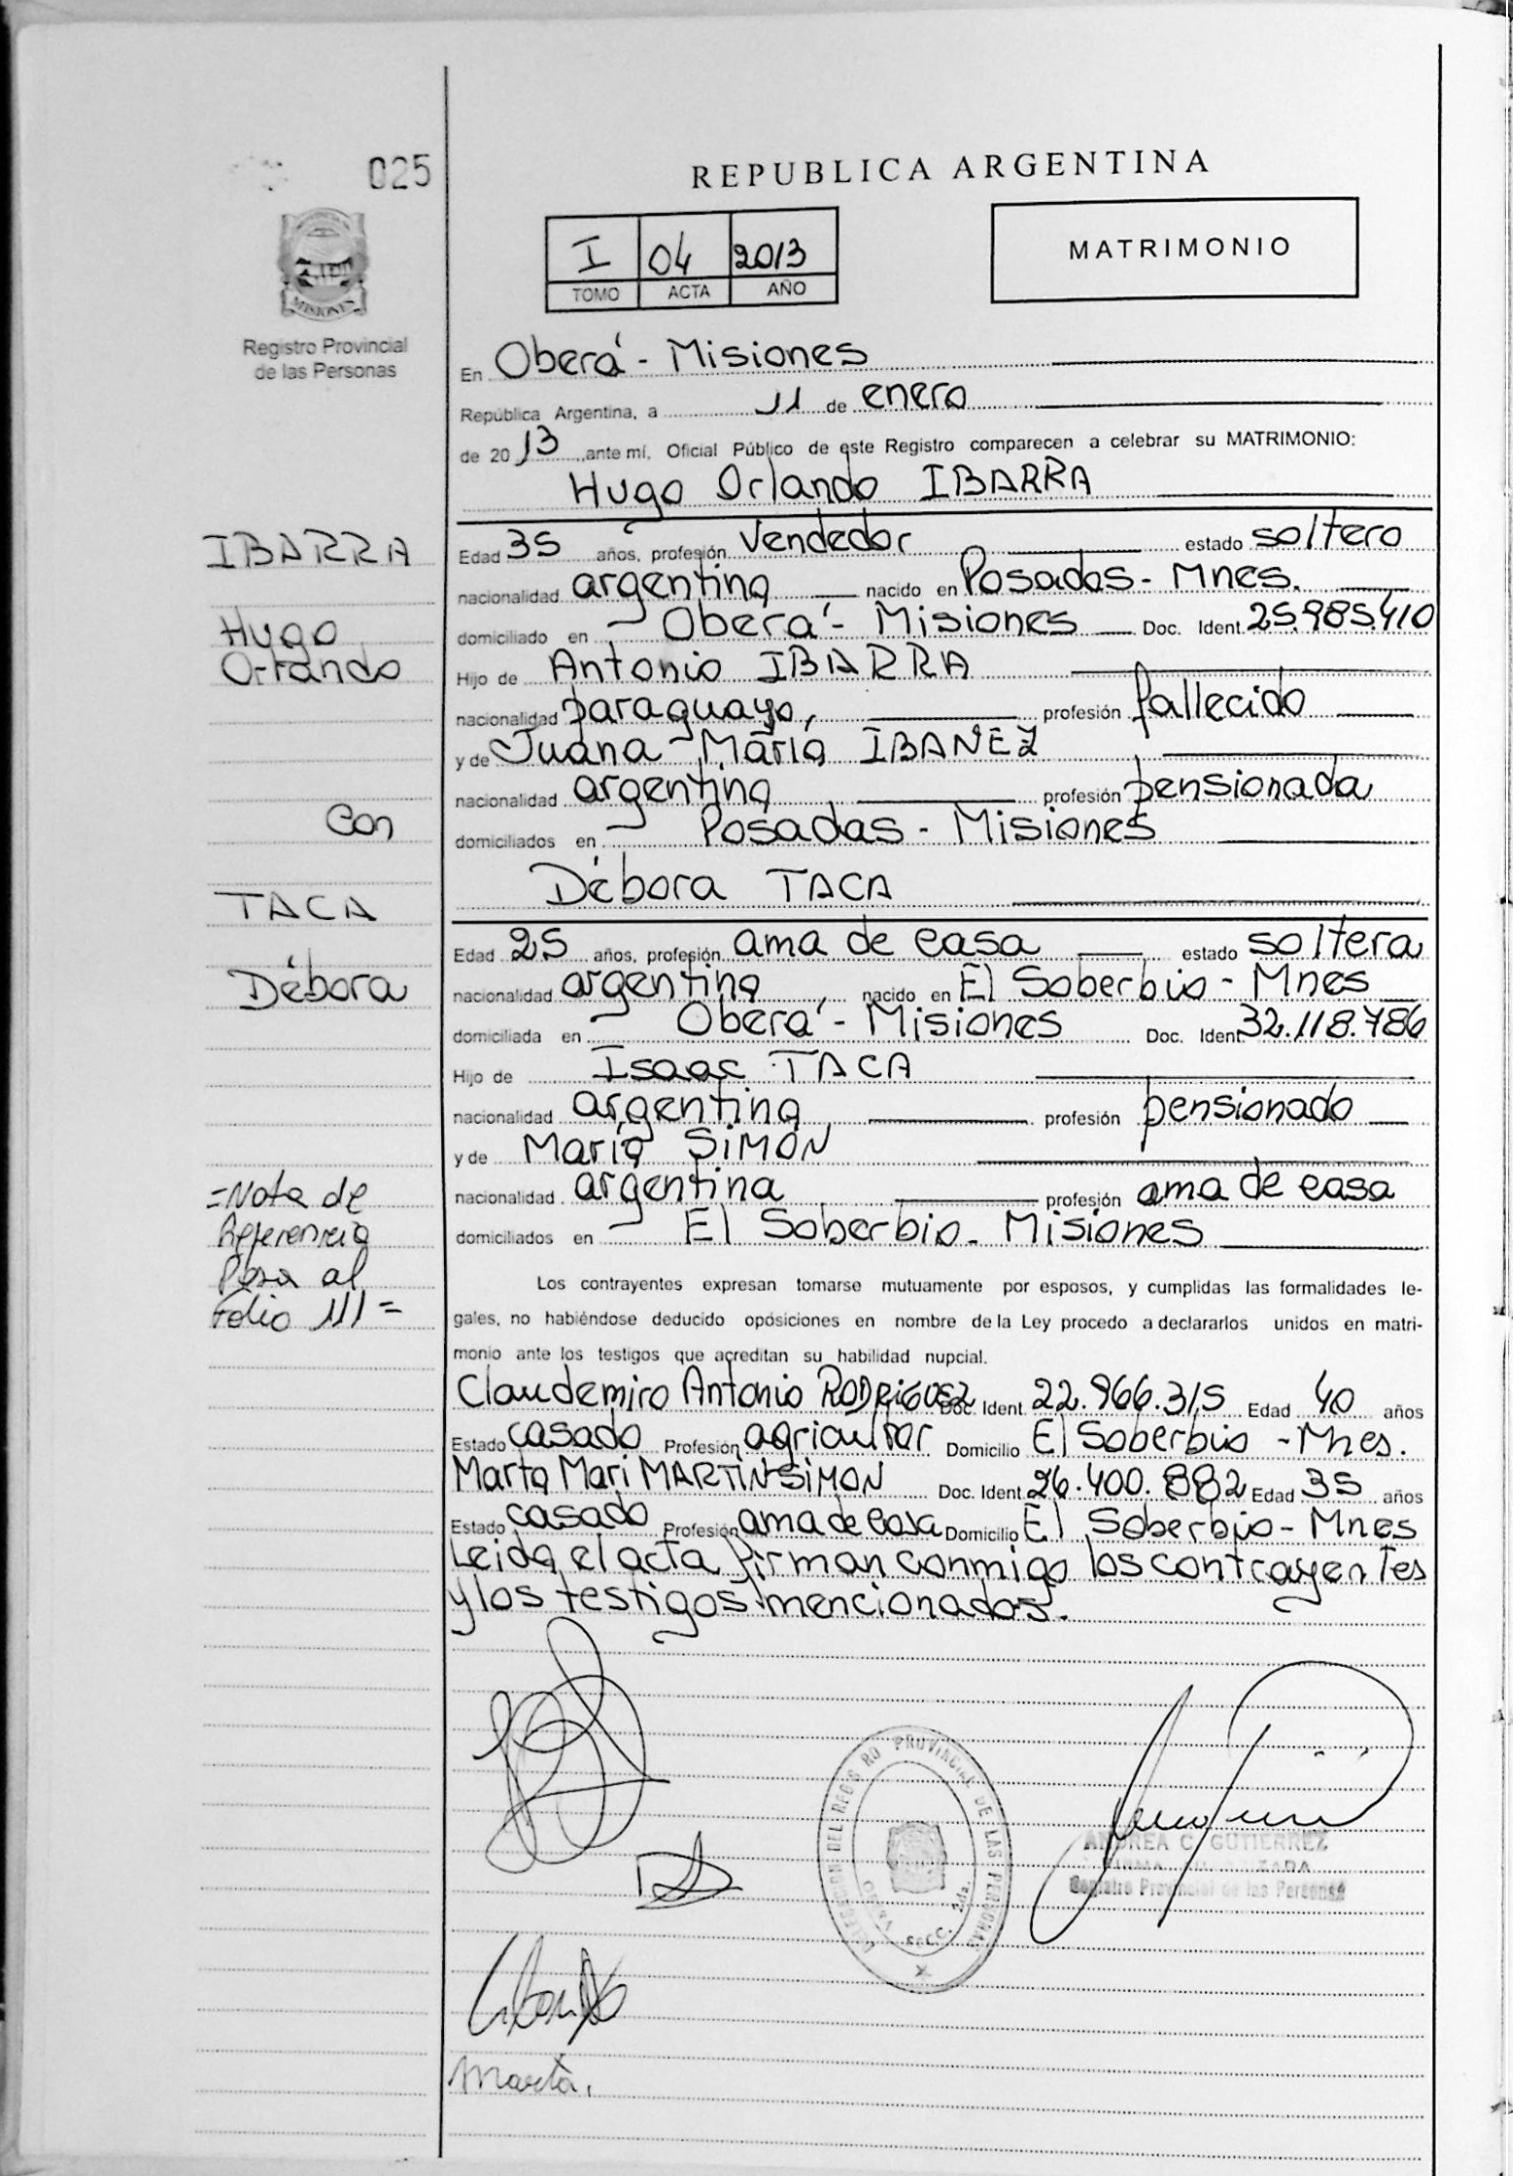 025
REPUBLICA ARGENTINA
I 04 2013
TOMO ACTA AÑO
MATRIMONIO
MISIONES
Registro Provincial
de las Personas
En Oberá - Misiones
República Argentina, a 11 de enero
de 2013, ante mí, Oficial Público de este Registro comparecen a celebrar su MATRIMONIO:
Hugo Orlando IBARRA
Edad 35 años, profesión Vendedor estado soltero
nacionalidad argentina nacido en Posadas - Mnes.
domiciliado en Oberá - Misiones Doc. Ident. 25.985.410
Hijo de Antonio IBARRA
nacionalidad paraguayo, profesión fallecido
y de Juana María IBAÑEZ
nacionalidad argentina profesión pensionada
domiciliados en Posadas - Misiones
Débora TACA
Edad 25 años, profesión ama de casa estado soltera
nacionalidad argentina nacido en El Soberbio - Mnes
domiciliada en Oberá - Misiones Doc. Ident. 32.118.786
Hijo de Isaac TACA
nacionalidad argentina profesión pensionado
y de María SIMÓN
nacionalidad argentina profesión ama de casa
domiciliados en El Soberbio - Misiones
Los contrayentes expresan tomarse mutuamente por esposos, y cumplidas las formalidades le-
gales, no habiéndose deducido oposiciones en nombre de la Ley procedo a declararlos unidos en matri-
monio ante los testigos que acreditan su habilidad nupcial.
Claudemiro Antonio RODRIGUEZ Doc. Ident. 22.966.315 Edad 40 años
Estado casado Profesión agricultor Domicilio El Soberbio - Mnes.
Marta Mari MARTIN SIMON Doc. Ident. 26.400.882 Edad 35 años
Estado casado Profesión ama de casa Domicilio El Soberbio - Mnes
Leida el acta firman conmigo los contrayentes
y los testigos mencionados.
IBARRA
Hugo
Orlando
Con
TACA
Débora
=Nota de
Referencia
Pasa al
Folio 111=
DELEGACION DEL REGISTRO PROVINCIAL DE LAS PERSONAS
OBERA SECC. 2da.
ANDREA C. GUTIERREZ
FIRMA AUTORIZADA
Registro Provincial de las Personas
Marta.